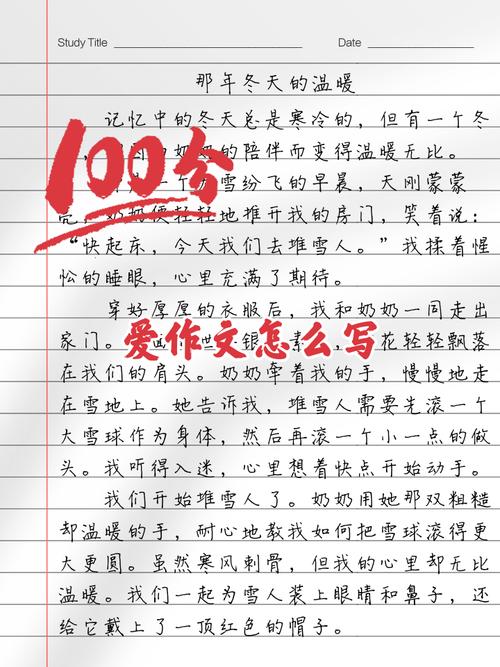 Study Title
Date
那年冬天的温暖
记忆中的冬天总是寒冷的，但有一个冬
的陪伴而变得温暖无比。
100分
一个 雪纷飞的早晨，天刚蒙蒙
奶奶便轻轻地推开我的房门，笑着说：
“快起床，今天我们去堆雪人。”我揉着惺
忪的睡眼，心里充满了期待。
穿好厚厚的衣服后，我和奶奶一同走出
家门。 世 银 素 花轻轻飘落
爱作文怎么写
在我们的肩头。奶奶牵着我的手，慢慢地走
在雪地上。她告诉我，堆雪人需要先滚一个
大雪球作为身体，然后再滚一个小一点的做
头。我听得入迷，心里想着快点开始动手。
我们开始堆雪人了。奶奶用她那双粗糙
却温暖的手，耐心地教我如何把雪球滚得更
大更圆。虽然寒风刺骨，但我的心里却无比
温暖。我们一起为雪人装上眼睛和鼻子，还
给它戴上了一顶红色的帽子。